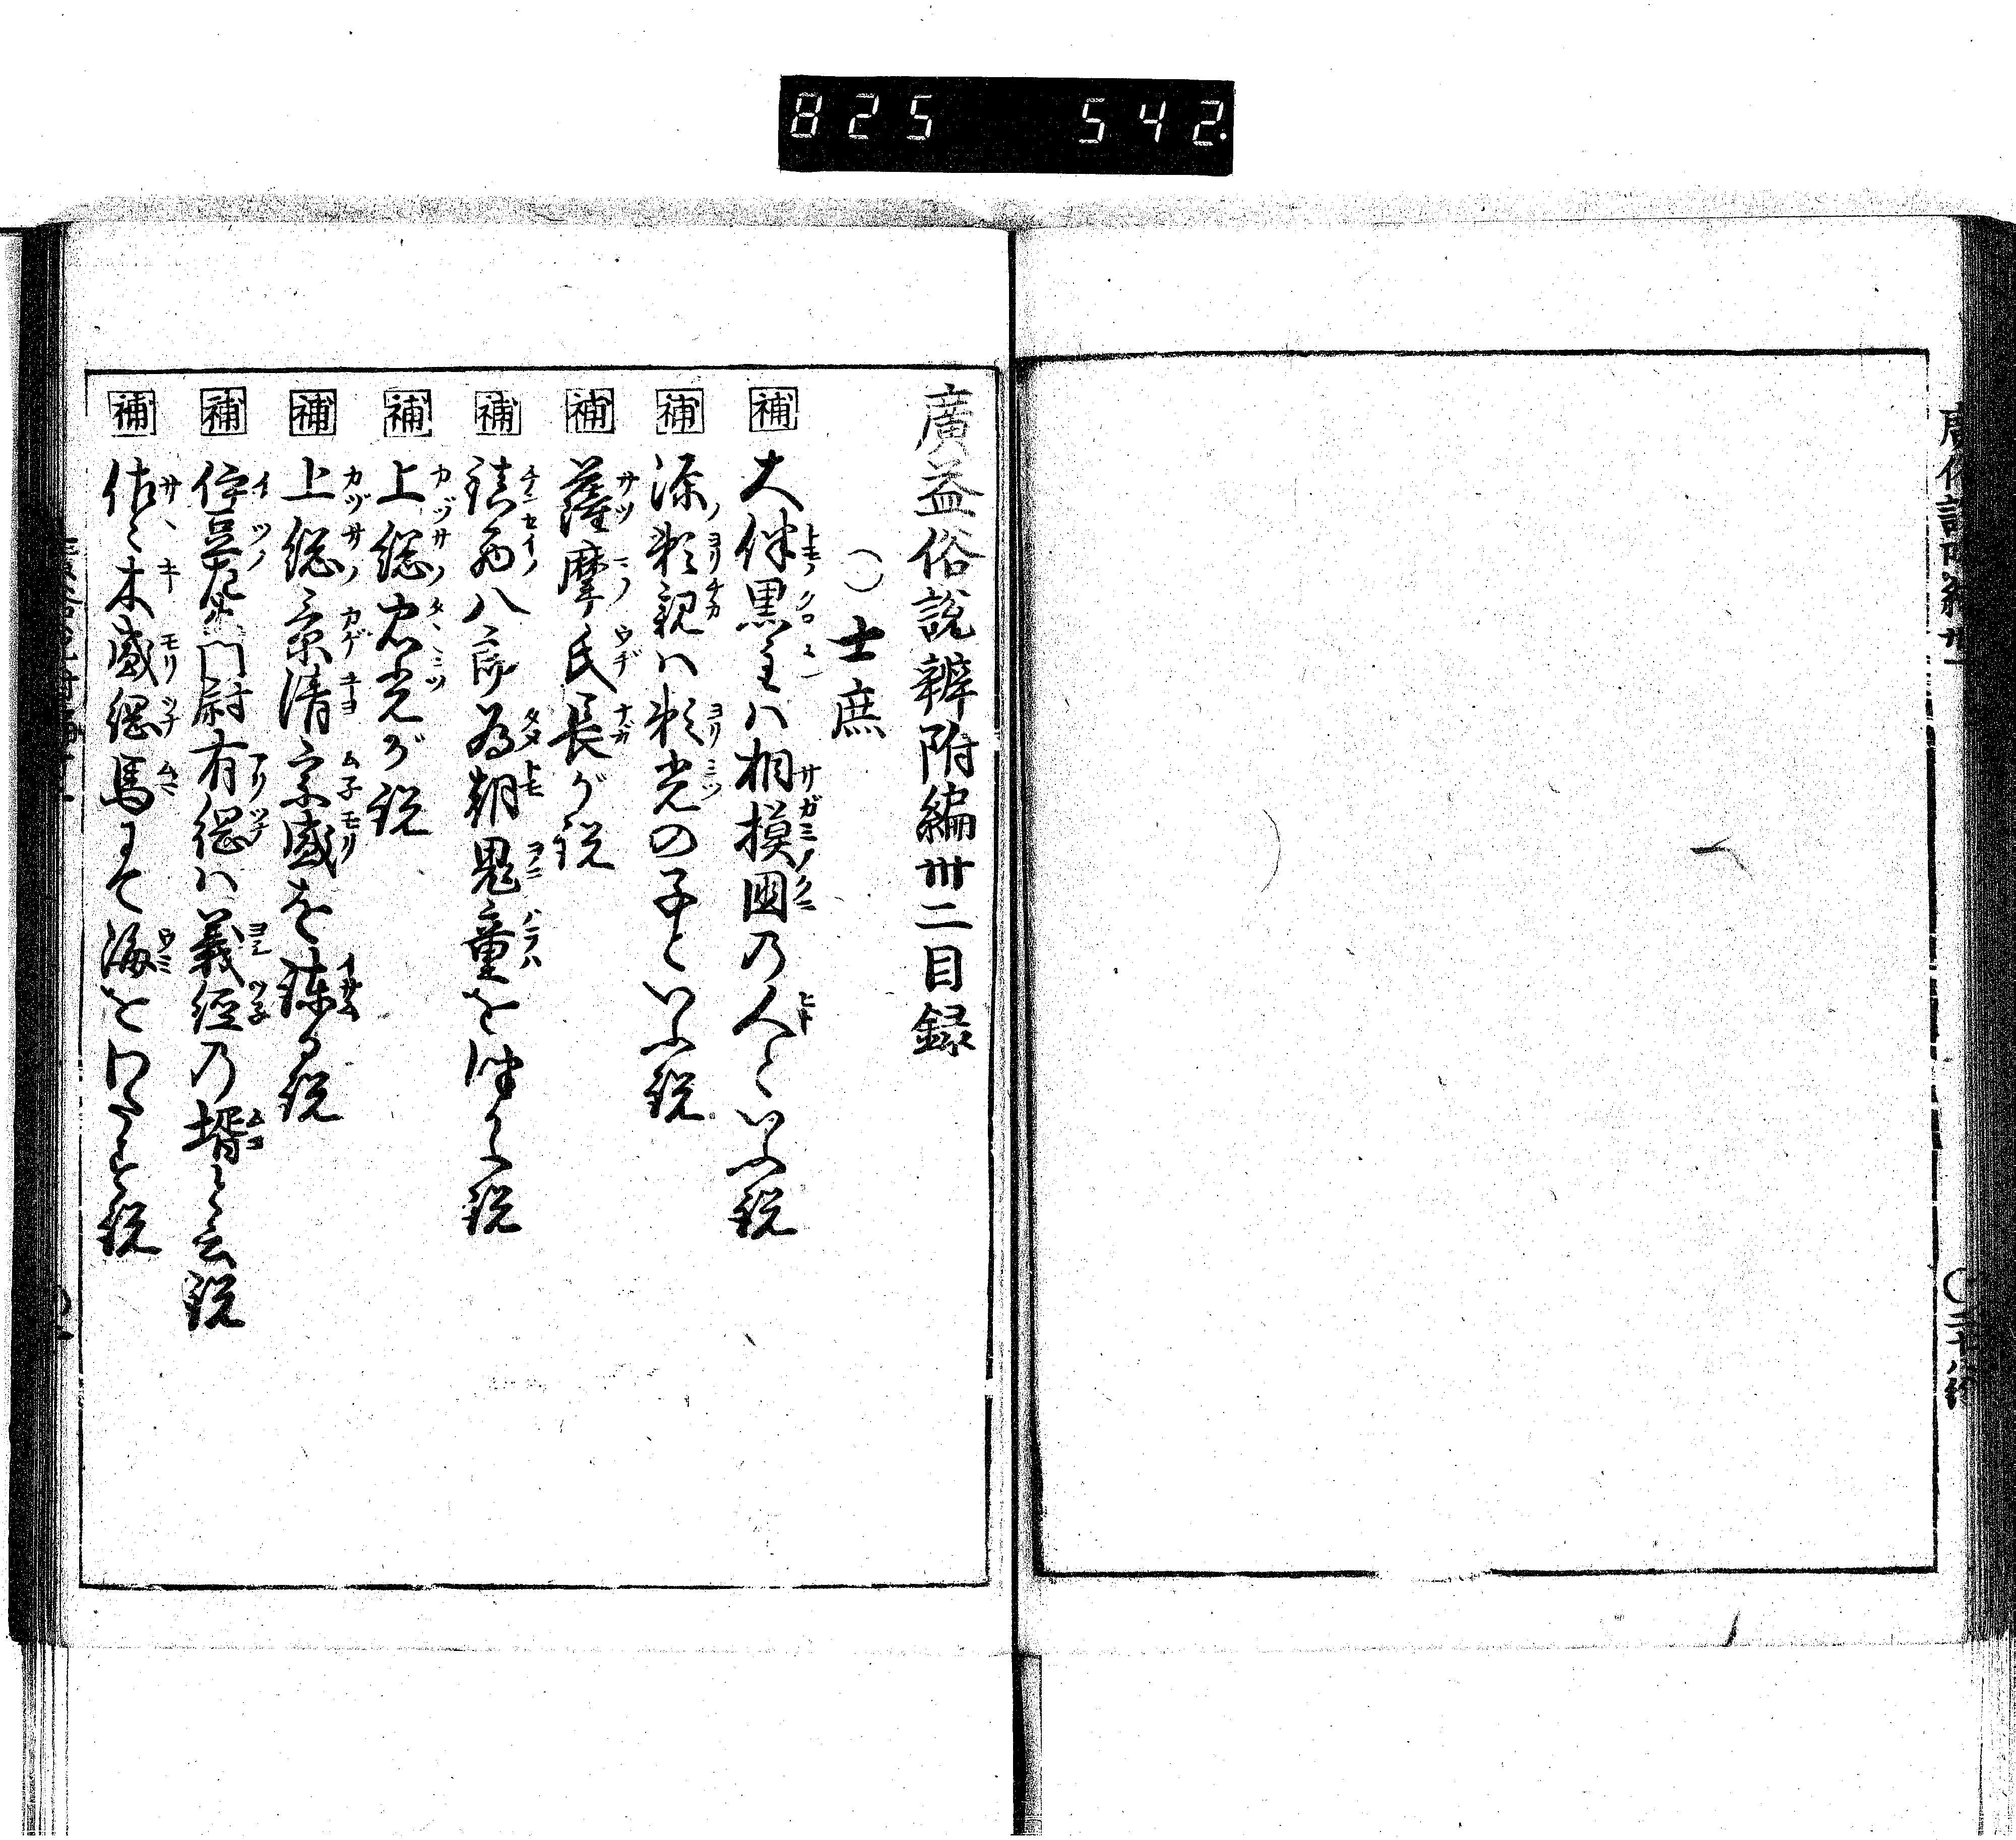 825 542
廣益俗説辨附編卅二目録
〇士庶
補 大伴黒主ハ相模國乃人といふ説
補 源頼親ハ頼光の子といふ説
補 薩摩氏長が説
補 鎮西八郎為朝鬼童を伴ふ説
補 上総忠光が説
補 上総景清宗盛を諫る説
補 伊豆左衛門尉有綱ハ義經乃壻と云説
補 佐々木盛綱馬にて海をわたる説